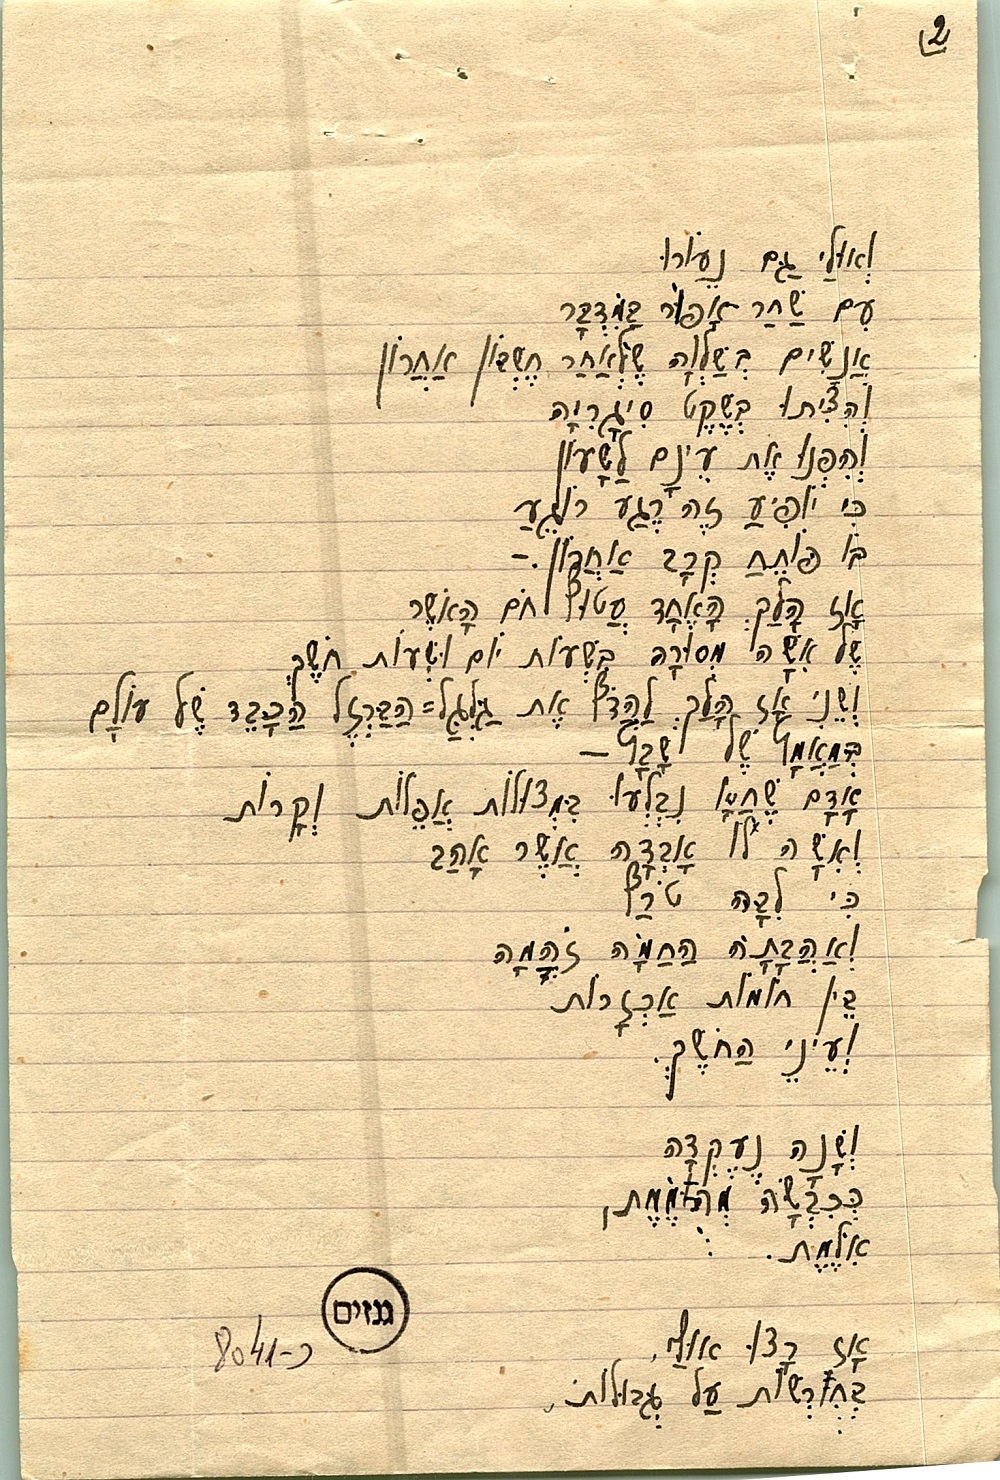 2
וְאוּלַי גַּם נֵעוֹרוּ
עִם שַׁחַר אָפוֹר בַּמִּדְבָּר
אֲנָשִׁים בְּשַׁלְוָה שֶׁלְּאַחַר חֶשְׁבּוֹן אַחֲרוֹן
וְהִצִּיתוּ בְּשֶׁקֶט סִיגָרִיָה
וְהִפְנוּ אֶת עֵינָם לַשָּׁעוֹן
כִּי יוֹפִיעַ זֶה רֶגַע רוֹגֵעַ
בּוֹ פוֹתֵחַ קְרָב אַחֲרוֹן. –
אָז הָלַךְ הָאֶחָד עֲטוּף חֹם הָאֹשֶׁר
שֶׁל אִשָּׁה מְסוּרָה בִּשְׁעוֹת יוֹם וּשְׁעוֹת חֹשֶׁךְ
וְשֵׁנִי אָז הָלַךְ לַהֲדֹף אֶת גַּלְגַּל=הַבַּרְזֶל הַכָּבֵד שֶׁל עוֹלָם
בְּמַאֲמָץ שֶׁל שָׁבָץ –
אָדָם שֶׁחַיָּו נִבְלְעוּ בִּמְצוּלוֹת אֲפֵלוֹת וְקָרוֹת
וְאִשָּׁה לוֹ אָבְדָה אֲשֶׁר אָהַב
כִּי לִבָּהּ טֹרַף
וְאַהֲבָתָהּ הַחַמָּה זֹהֲמָה
בֵּין חוֹמוֹת אַכְזָרוֹת
וְעֵינֵי הַחֹשֶׁךְ.
וְשָׁנָה נֶעֶקְדָה
כְּכִבְשָׂה מְהֻמֶּמֶת,
אִלֶּמֶת.
אָז רָצוּ אוּלַי,
בְּחֹרְשׁוֹת עַל גְּבוּלוֹת,
גנזים
כ-8041